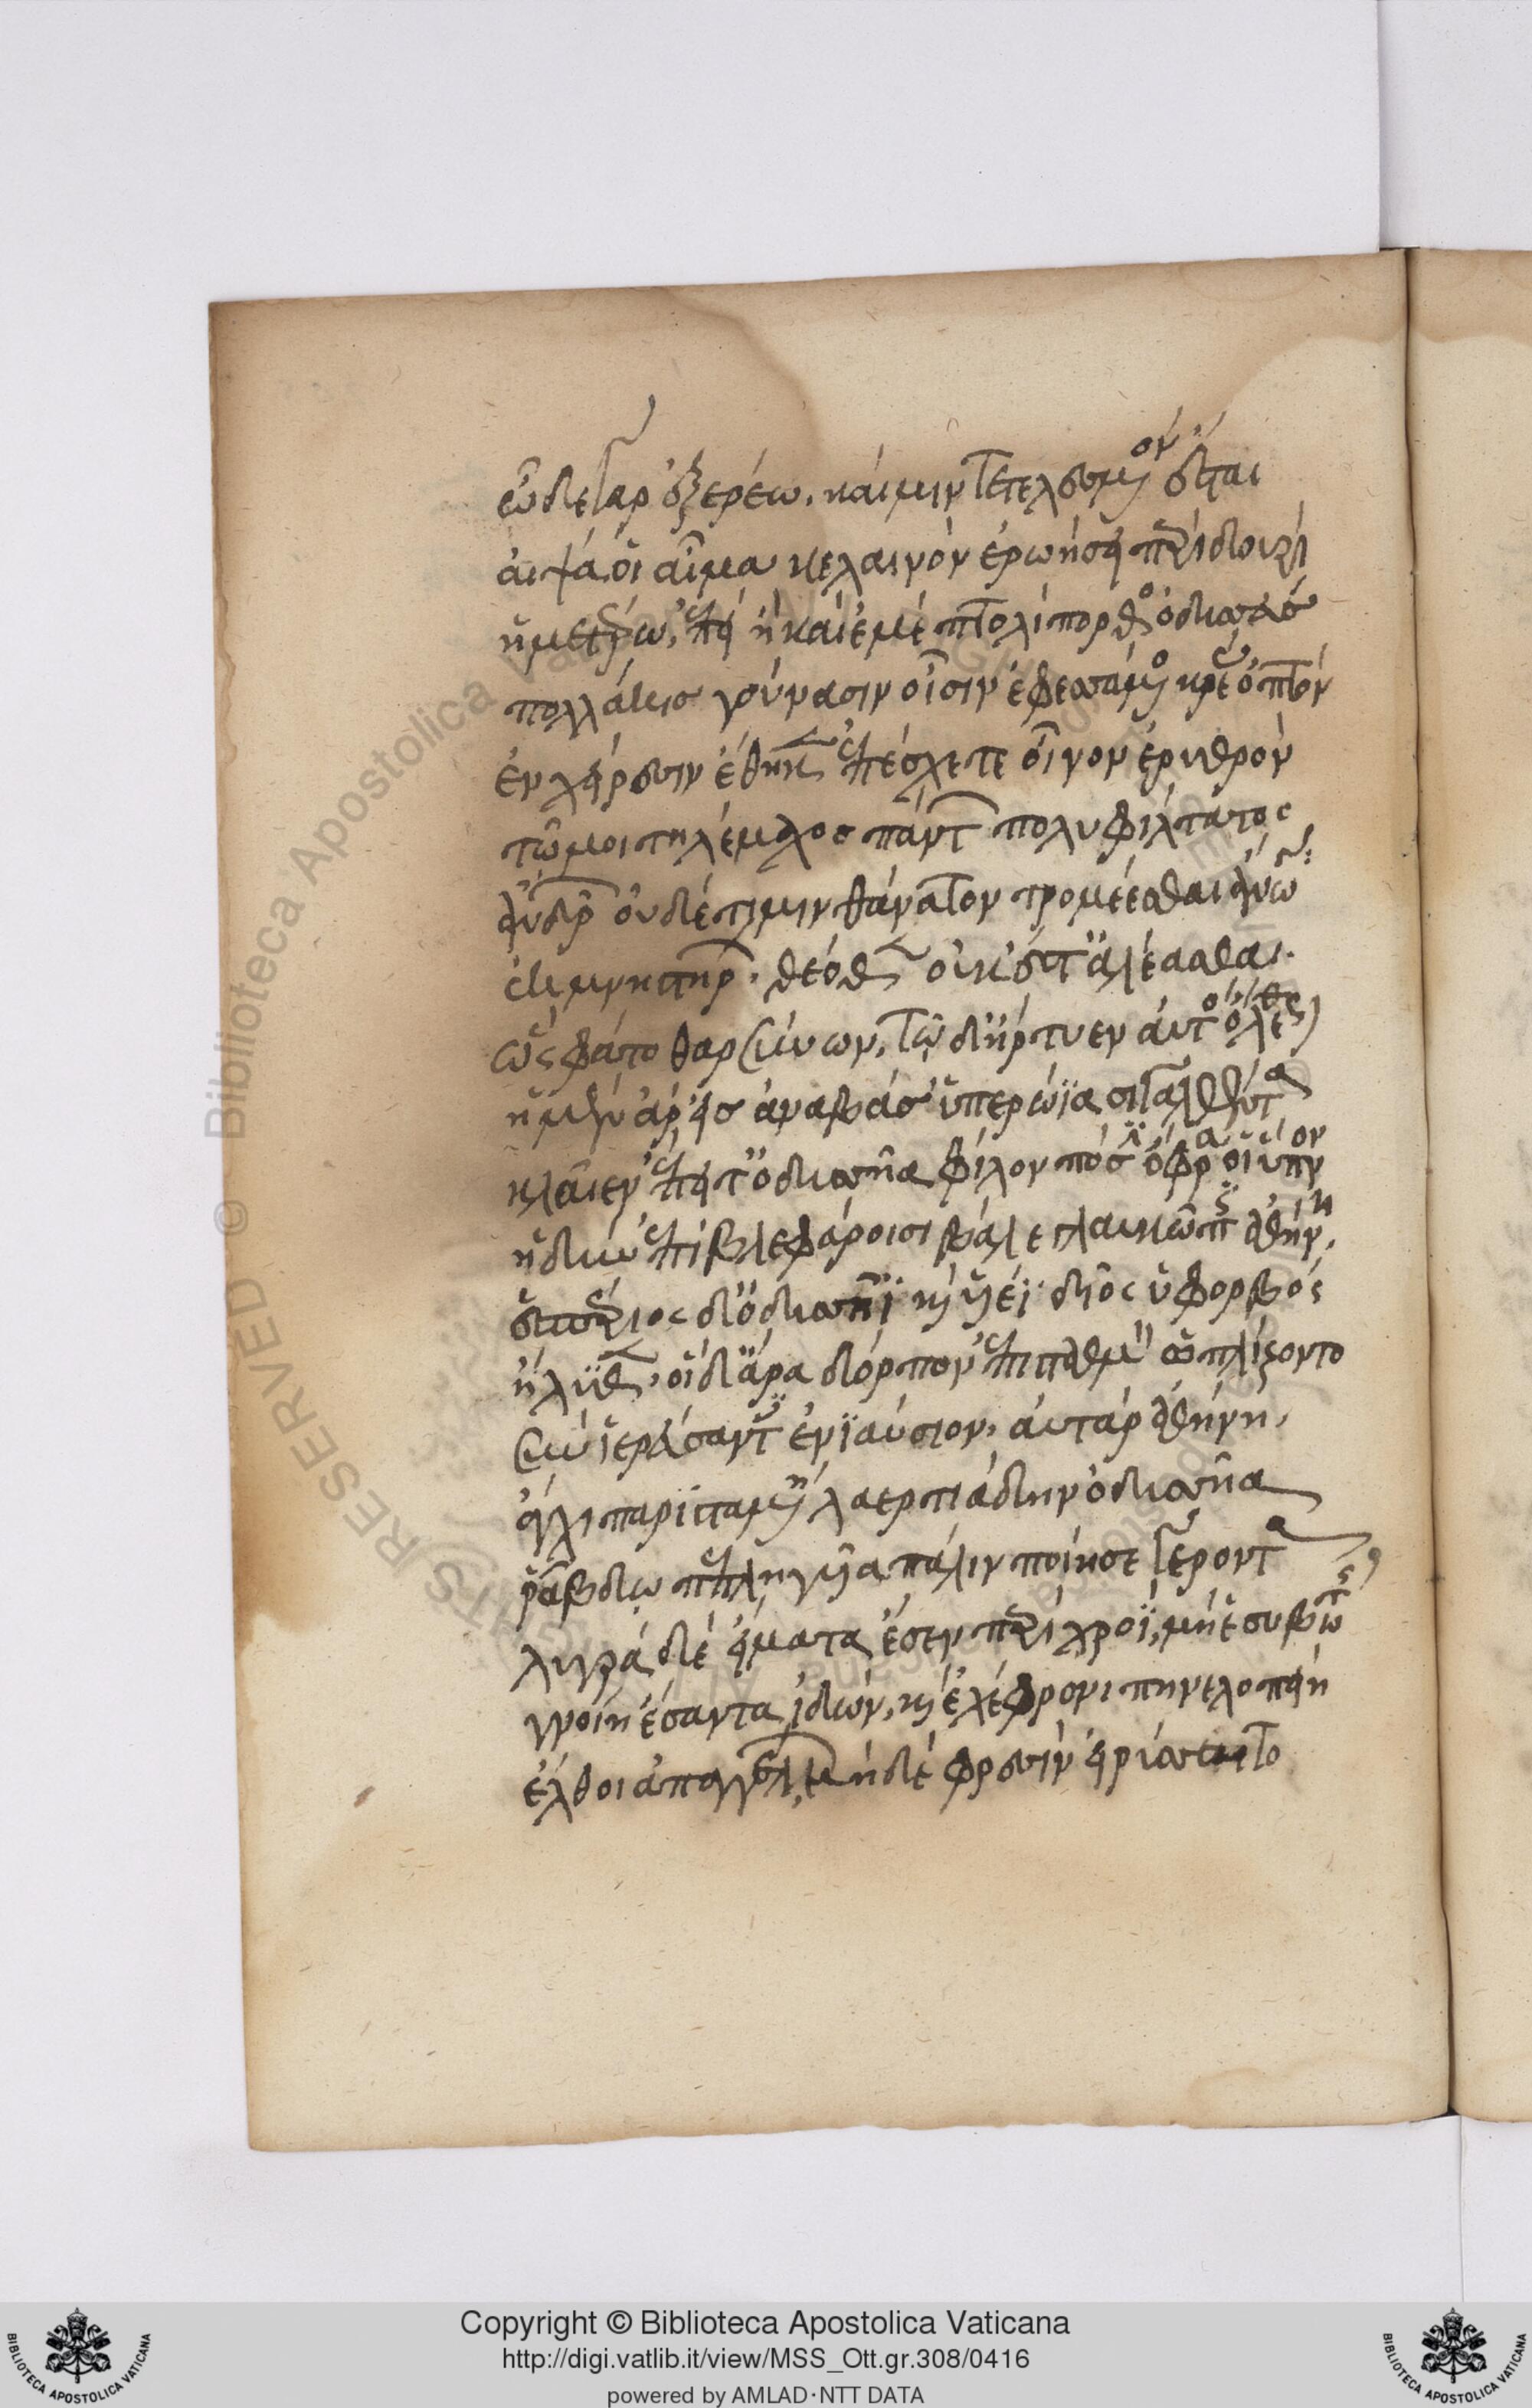 ὧδε γαρ ἐξερέω. καὶ μην τετελεσμένον ἔσται
αἶψά οἱ αἷμα κελαινὸν ἐρωήσει περὶ δουρὶ
ἡμετέρω. ἐπεὶ ἦ καὶ ἐμὲ πτολίπορθος ὀδυσσεὺς
πολλάκις γούνασιν οἷσιν ἐφεσσάμενος κρέας ὀπτὸν
ἐν χείρεσσιν ἔθηκεν ἐπέσχε τε οἶνον ἐρυθρὸν
τῶ μοι τηλέμαχος πάντων πολυφίλτατος
ἀνδρῶν οὐδέ τι μιν θάνατον τρομέεσθαι ἀνώγω:
ἐκ μνηστήρων. θεόθεν δ' οὐκ ἔστ' ἀλέασθαι.
ὣς φάτο θαρσύνων. τῶ δ' ἤρτυεν αὐτὸς ὄλεθρον
ἡ μὲν ἄρ' εἰσ ἀναβάσ' ὑπερώϊα σιγαλόεντα
κλαῖεν ἔπειτ' ὀδυσσῆα φίλον πόσιν ὄφρα οἱ ὕπνον
ἡδὺν ἐπὶ βλεφάροισι βάλε γλαυκῶπις ἀθήνη.
ἑσπέριος δ' ὀδυσσῆϊ καὶ υἱέϊ δῖος ὑφορβὸς
ἤλυθεν. οἱ δ' ἄρα δόρπον ἐπισταδὸν ὡπλίζοντο
σῦν ἱερεύσαντες ἐνιαύσιον. αὐτὰρ ἀθήνη.
ἄγχι παρισταμένη λαερτιάδην ὀδυσσῆα
ῥάβδω πεπληγυῖα πάλιν ποίησε γέροντα
λυγρὰ δὲ εἵματα ἕσεν περὶ χροῒ, μή ἑ συβώτης
γνοίη ἐσάντα ἰδών. καὶ ἐχέφρονι πηνελοπείη
ἔλθοι ἀπαγγέλλων μηδὲ φρεσὶν εἰρύσσαιτο
Copyright © Biblioteca Apostolica Vaticana
http://digi.vatlib.it/view/MSS_Ott.gr.308/0416
powered by AMLAD·NTT DATA